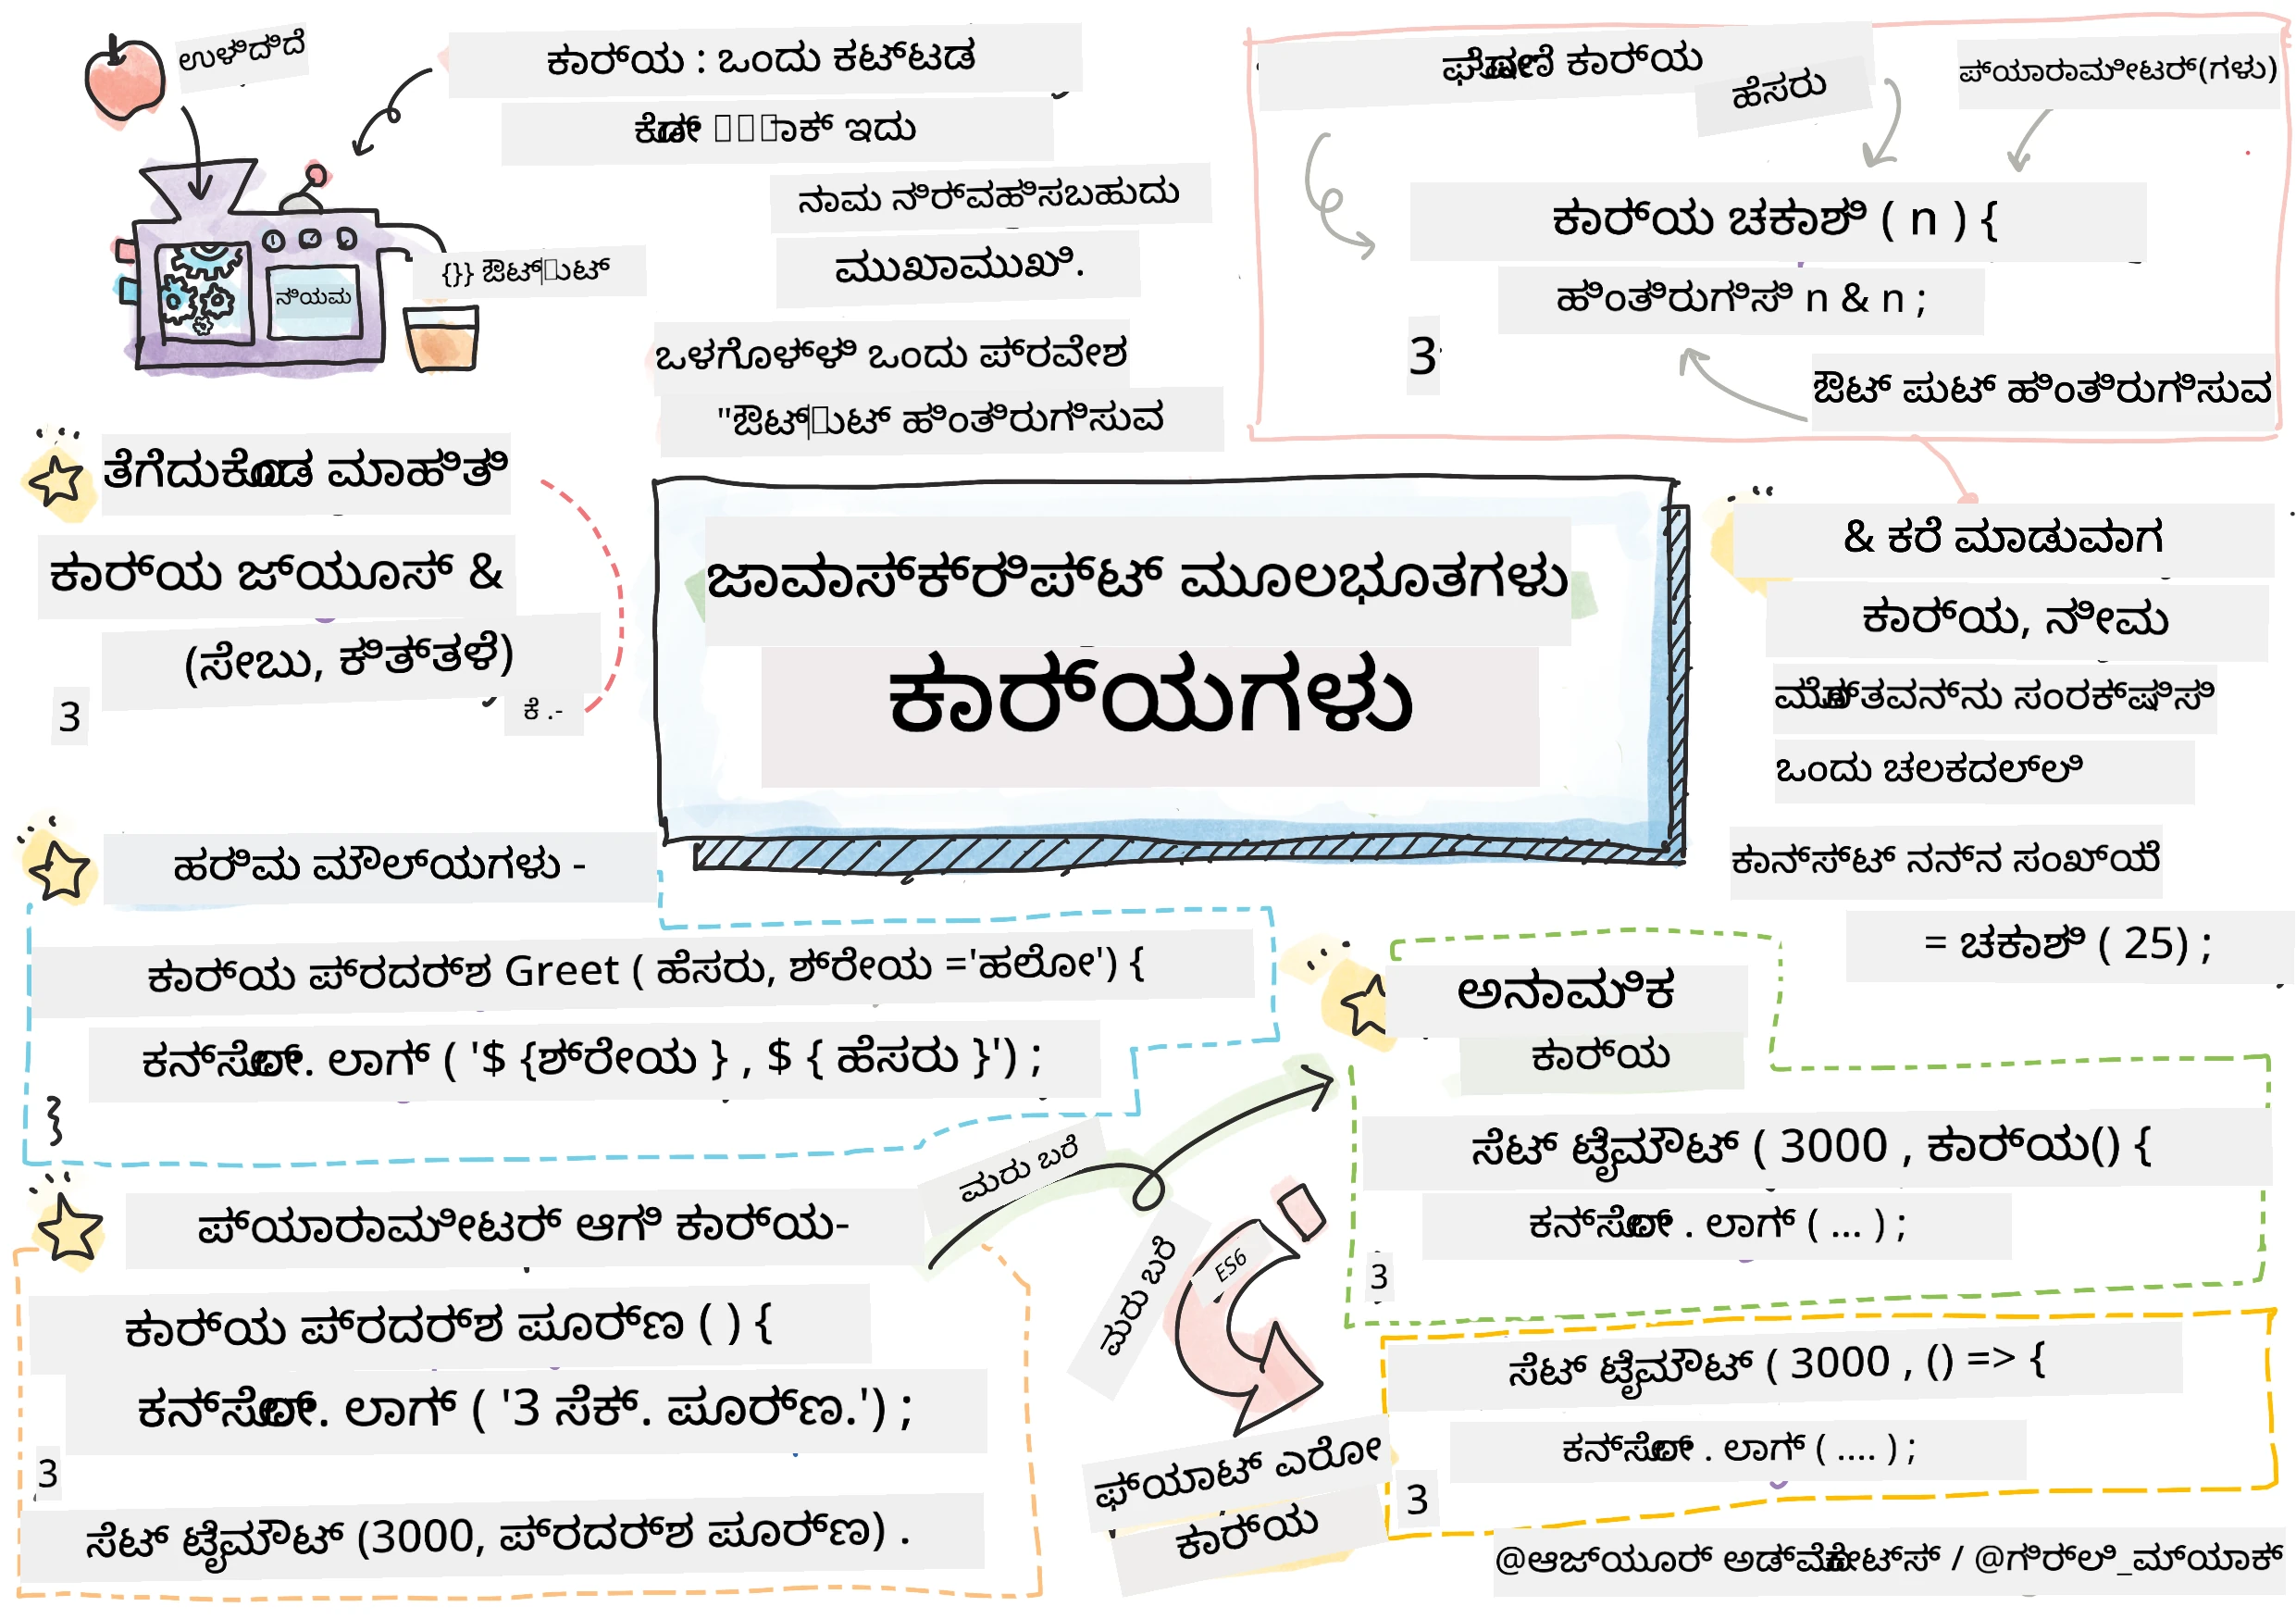 ಉಳಿದಿದೆ
ಕಾರ್ಯ : ಒಂದು ಕಟ್ಟಡ
ಕೋಡ್ ಇದು
ನಾಮ ನಿರ್ವಹಿಸಬಹುದು
ಮುಖಾಮುಖಿ.
{}} ಔಟ್‌ಪುಟ್
ನಿಯಮ
ಒಳಗೊಳ್ಳಿ ಒಂದು ಪ್ರವೇಶ
"ಔಟ್‌ಪುಟ್ ಹಿಂತಿರುಗಿಸುವ
ಘೋಷಣೆ ಕಾರ್ಯ
ಹೆಸರು
ಪ್ಯಾರಾಮೀಟರ್(ಗಳು)
ಕಾರ್ಯ ಚಕಾಶಿ ( n ) {
ಹಿಂತಿರುಗಿಸಿ n & n ;
3
ಔಟ್ ಪುಟ್ ಹಿಂತಿರುಗಿಸುವ
ತೆಗೆದುಕೊಂಡ ಮಾಹಿತಿ
ಕಾರ್ಯ ಜ್ಯೂಸ್ &
(ಸೇಬು, ಕಿತ್ತಳೆ)
3
ಕೆ .-
ಜಾವಾಸ್ಕ್ರಿಪ್ಟ್ ಮೂಲಭೂತಗಳು
ಕಾರ್ಯಗಳು
& ಕರೆ ಮಾಡುವಾಗ
ಕಾರ್ಯ, ನೀಮ
ಮೊತ್ತವನ್ನು ಸಂರಕ್ಷಿಸಿ
ಒಂದು ಚಲಕದಲ್ಲಿ
ಕಾನ್ಸ್ಟ್ ನನ್ನ ಸಂಖ್ಯೆ
= ಚಕಾಶಿ ( 25) ;
ಹರಿಮ ಮೌಲ್ಯಗಳು -
ಕಾರ್ಯ ಪ್ರದರ್ಶ Greet ( ಹೆಸರು, ಶ್ರೇಯ ='ಹಲೋ') {
ಕನ್ಸೋಲ್. ಲಾಗ್ ( '$ {ಶ್ರೇಯ } , $ { ಹೆಸರು }') ;
}
ಅನಾಮಿಕ
ಕಾರ್ಯ
ಸೆಟ್ ಟೈಮೌಟ್ ( 3000 , ಕಾರ್ಯ() {
ಕನ್ಸೋಲ್ . ಲಾಗ್ ( ... ) ;
3
ಪ್ಯಾರಾಮೀಟರ್ ಆಗಿ ಕಾರ್ಯ-
ಕಾರ್ಯ ಪ್ರದರ್ಶ ಪೂರ್ಣ ( ) {
ಕನ್ಸೋಲ್. ಲಾಗ್ ( '3 ಸೆಕ್. ಪೂರ್ಣ.') ;
3
ಸೆಟ್ ಟೈಮೌಟ್ (3000, ಪ್ರದರ್ಶ ಪೂರ್ಣ) .
ಮರು ಬರೆ
ಮರು ಬರೆ
ES6
ಫ್ಯಾಟ್ ಎರೋ
ಕಾರ್ಯ
ಸೆಟ್ ಟೈಮೌಟ್ ( 3000 , () => {
ಕನ್ಸೋಲ್ . ಲಾಗ್ ( .... ) ;
3
@ಆಜ್ಯೂರ್ ಅಡ್ವೊಕೇಟ್ಸ್ / @ಗಿರ್ಲಿ_ಮ್ಯಾಕ್